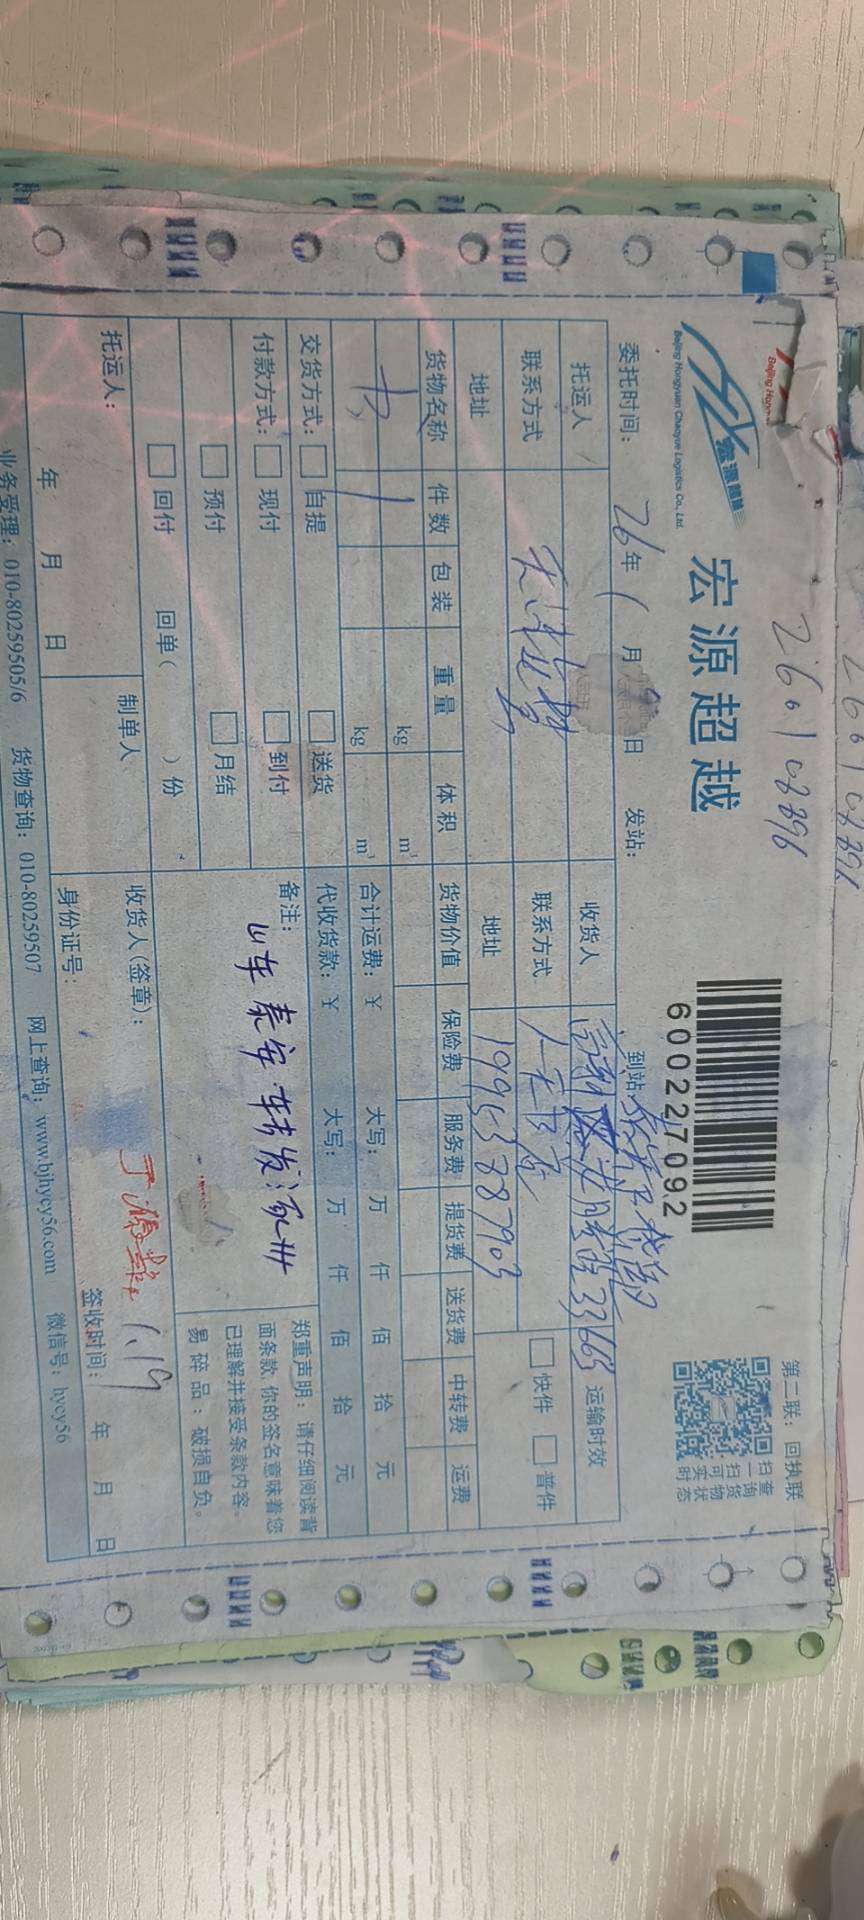 26010896
第二联：回执联
宏源超越
Beijing Hongyuan Chaoyue Logistics Co., Ltd.
宏源超越
60022709 2
扫一扫 货物实时
查询 可 状态
委托时间： 26年 1月 日 发站： 到站
托运人
收货人
33663
运输时效
联系方式
天津
联系方式
快件 普件
地址
地址
19953887903
货物名称 件数 包装 重量 体积 货物价值 保险费 服务费 提货费 送货费 中转费 运费
1 kg m³
kg m³
合计运费：¥ 大写： 万 仟 佰 拾 元
交货方式： 自提 送货
代收货款：¥ 大写： 万 仟 佰 拾 元
付款方式： 现付 到付
预付 月结
回付 回单（ ）份
备注：
山东泰安转发涿州
郑重声明：请仔细阅读背
面条款，你的签名意味着您
已理解并接受条款内容。
易碎品：破损自负。
托运人：
年 月 日
制单人
收货人(签章)：
1.19
身份证号：
签收时间： 年 月 日
业务受理：010-80259505/6 货物查询：010-80259507 网上查询：www.bjhycy56.com 微信号：hycy56